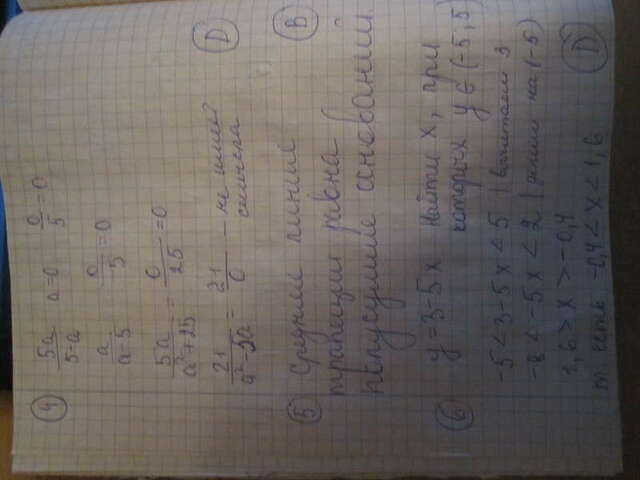 ④ 5a/5-a a=0 0/5=0
a/a-5 0/5=0
5a/a²+25 = 0/25 =0
21/a²-5a = 21/0 - не имеет смысла Ⓓ
⑤ Средняя линия Ⓑ
трапеции равна
полусумме оснований.
⑥ y=3-5x Найти x, при
которых y∈(-5;5)
-5<3-5x<5 | вычитаем 3
-8<-5x<2 | делим на (-5)
1,6>x>-0,4
т.есть -0,4<x<1,6 Ⓓ